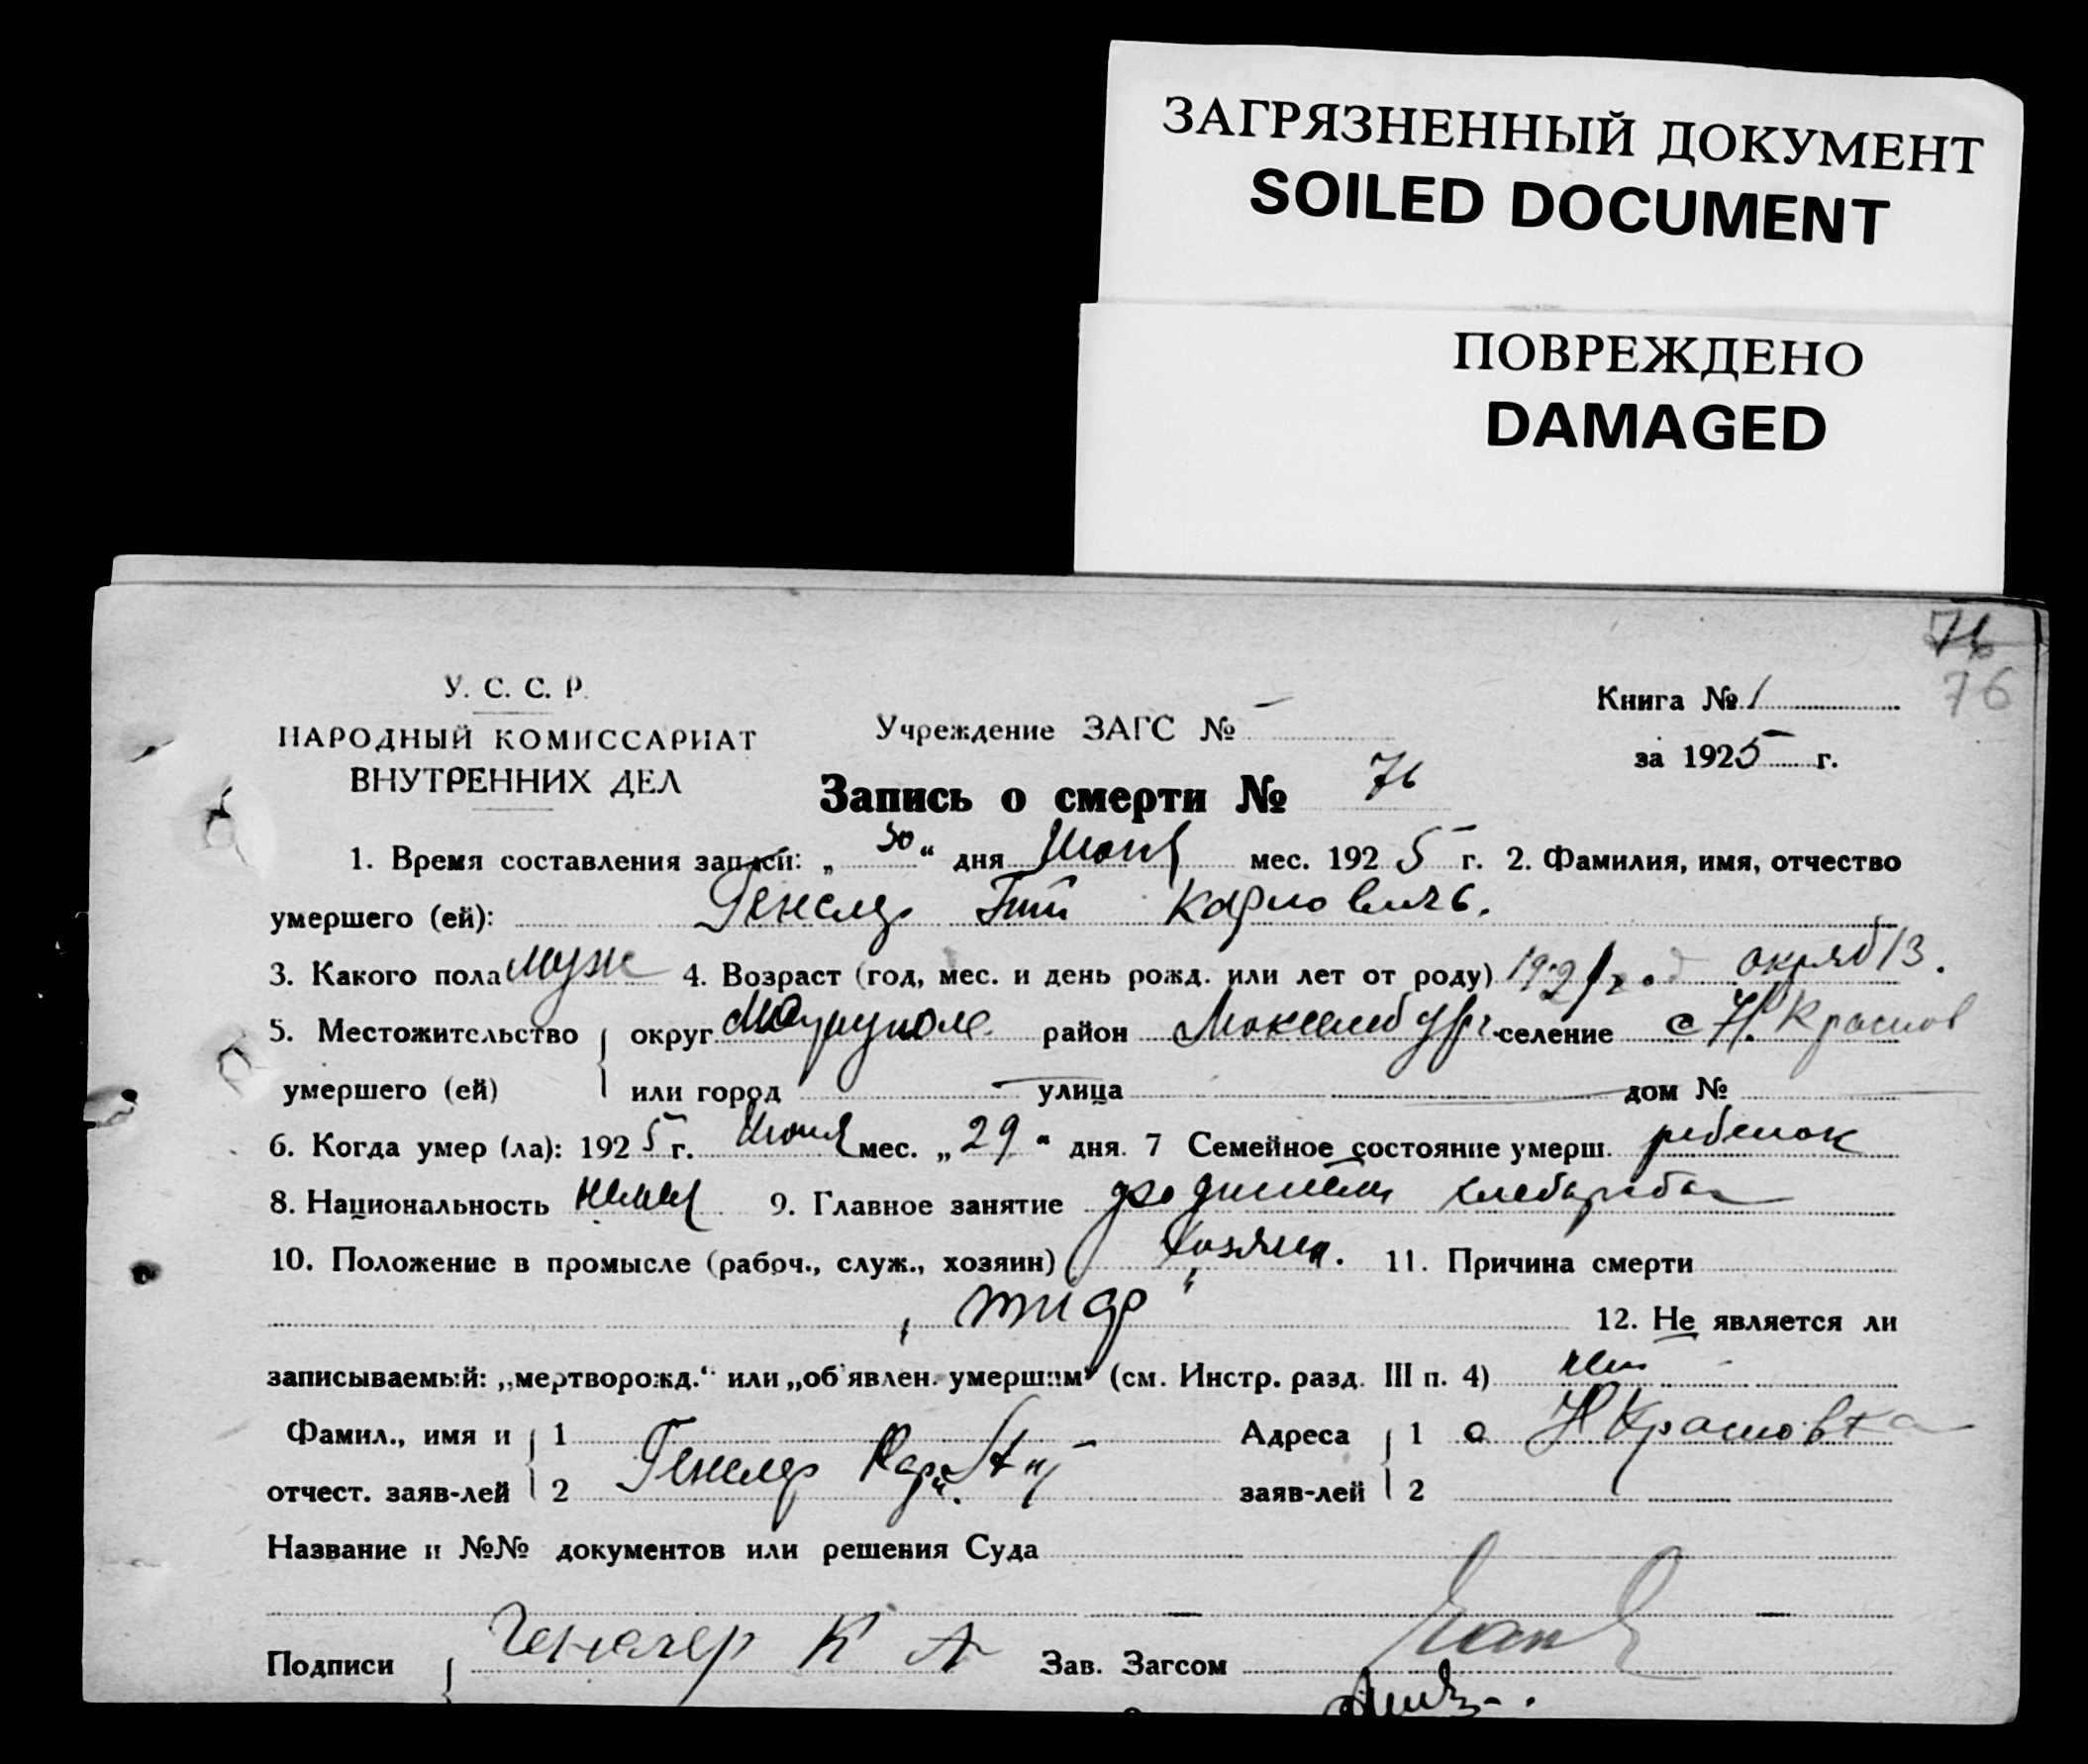 ЗАГРЯЗНЕННЫЙ ДОКУМЕНТ
SOILED DOCUMENT
ПОВРЕЖДЕНО
DAMAGED
76
76
У. С. С. Р.
НАРОДНЫЙ КОМИССАРИАТ
ВНУТРЕННИХ ДЕЛ
Учреждение ЗАГС № —
Книга № 1
за 1925 г.
Запись о смерти № 76
1. Время составления записи: „ 30 “ дня Июня мес. 1925 г. 2. Фамилия, имя, отчество
умершего (ей): Генслер Карлович.
3. Какого пола муж 4. Возраст (год, мес. и день рожд. или лет от роду) 1921 год 13.
5. Местожительство округ Мариуполь район Люксембург селение с Н. Краснов
умершего (ей) или город — улица — дом № —
6. Когда умер (ла): 1925 г. Июня мес. „ 29 “ дня. 7 Семейное состояние умерш. ребенок
8. Национальность немец 9. Главное занятие родители хлебороба
10. Положение в промысле (рабоч., служ., хозяин) хозяин. 11. Причина смерти
„ тиф “ 12. Не является ли
записываемый: „мертворожд.“ или „об'явлен. умершим“ (см. Инстр. разд. III п. 4) нет —
Фамил., имя и 1 Адреса 1 с Н Красновка
отчест. заяв-лей 2 Генслер заяв-лей 2
Название и №№ документов или решения Суда
Подписи Генслер К А Зав. Загсом